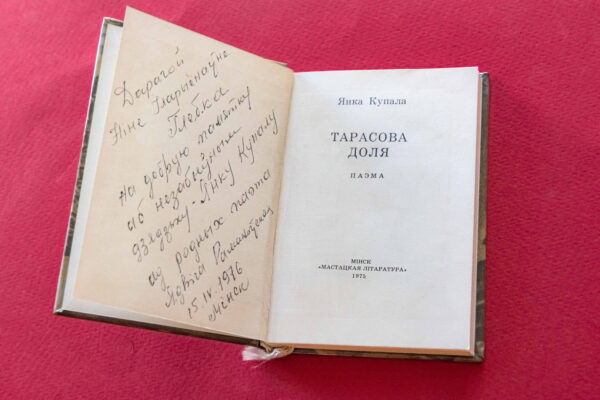 Дарагой
Ніне Іларыёнаўне
Глебка
На добрую памятку
аб незабыўным
дзядзьку - Янку Купалу
ад родных паэта
Ядвіга Раманоўская
15.IV.1976
Мінск
Янка Купала
ТАРАСОВА
ДОЛЯ
ПАЭМА
МІНСК
«МАСТАЦКАЯ ЛІТАРАТУРА»
1975